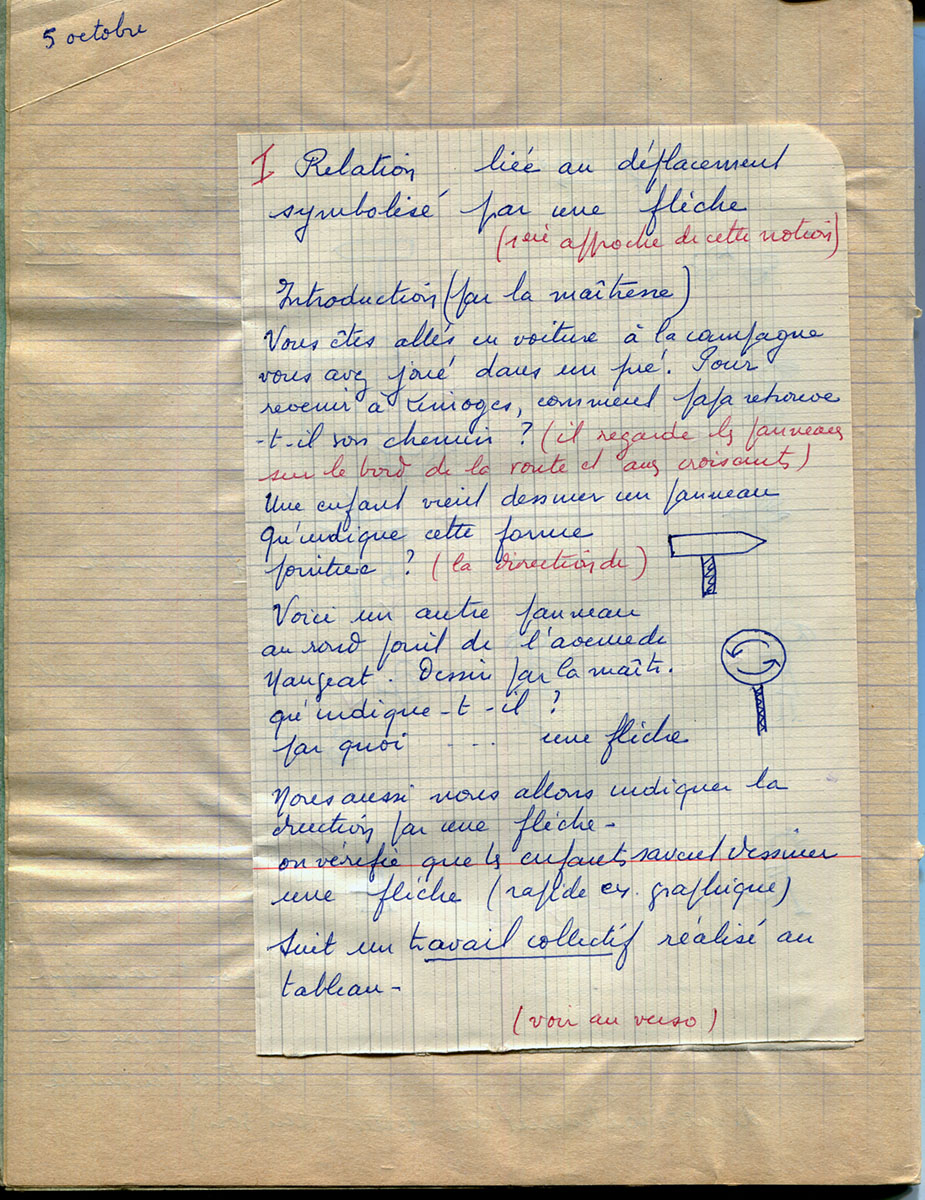 5 octobre
I Relation liée au déplacement
symbolisé par une flèche
(1ère approche de cette notion)
Introduction (par la maîtresse)
Vous êtes allés en voiture à la campagne
vous avez joué dans un pré. Pour
revenir à Limoges, comment papa retrouve
-t-il son chemin ? (il regarde les panneaux
sur le bord de la route et aux croisants)
Une enfant vient dessiner un panneau
Qu'indique cette forme
pointue ? (la direction de)
Voici un autre panneau
au rond point de l'avenue de
Naugeat. Dessin par la maît.
qu'indique-t-il ?
par quoi .... une flèche
Nous aussi nous allons indiquer la
direction par une flèche -
on vérifie que les enfants savent dessiner
une flèche (rapide ex. graphique)
Suit un travail collectif réalisé au
tableau -
(voir au verso)